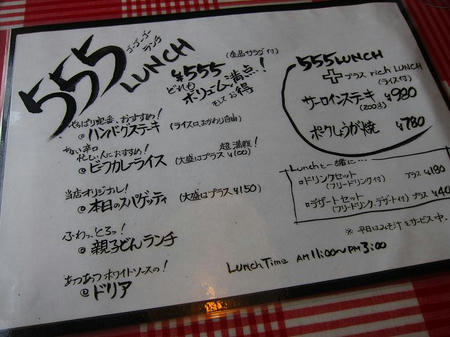 ゴーゴーゴーランチ
555 LUNCH
(全品サラダ付)
¥555
どれもボリューム満点!
でお得
やっぱり定番、おすすめ!
@ハンバーグステーキ (ライスおかわり自由)
やや辛口
忙しい人におすすめ! 超満腹!
@ビーフカレーライス (大盛はプラス¥100)
当店オリジナル!
@本日のスパゲッティ (大盛はプラス¥150)
ふわっ、とろっ!
@親子どんランチ
あつあつホワイトソースの!
@ドリア
555LUNCH
+プラス rich LUNCH
(ライス付)
サーロインステーキ ¥980
(200g)
ポークしょうが焼 ¥780
Lunchと一緒に…
ドリンクセット プラス ¥180
(フリードリンク付)
デザートセット
(フリードリンク、デザート付) プラス
※ 平日はみそ汁もサービス中。
LUNCH TIME AM 11:00〜PM 3:00